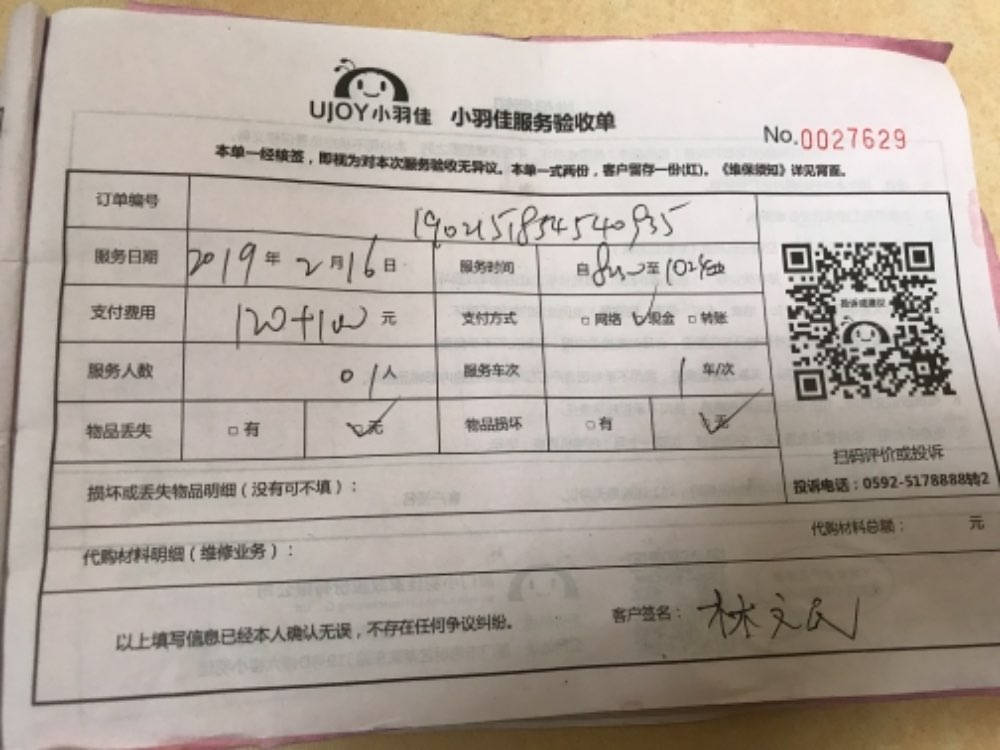 UJOY小羽佳 小羽佳服务验收单
No.0027629
本单一经核签，即视为对本次服务验收无异议。本单一式两份，客户留存一份(红)。《维保须知》详见背面。
订单编号 190215183454540935
服务日期 2019年2月16日 服务时间 自 至
支付费用 120+100元 支付方式 □网络 ✓现金 □转账
服务人数 01人 服务车次 1车/次
物品丢失 □有 ✓无 物品损坏 □有 ✓无
投诉或建议
扫码评价或投诉
投诉电话：0592-5178888转2
损坏或丢失物品明细（没有可不填）：
代购材料明细（维修业务）： 代购材料总额： 元
以上填写信息已经本人确认无误，不存在任何争议纠纷。 客户签名：林文民